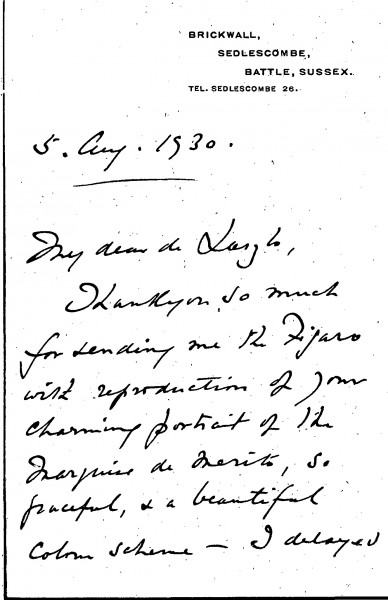 BRICKWALL,
SEDLESCOMBE,
BATTLE, SUSSEX.
TEL. SEDLESCOMBE 26.
5. Aug. 1930.
My dear de Laszlo,
Thank you so much
for sending me the Figaro
with reproduction of your
charming portrait of the
Marquise de Merito, so
graceful, & a beautiful
colour scheme — I delayed